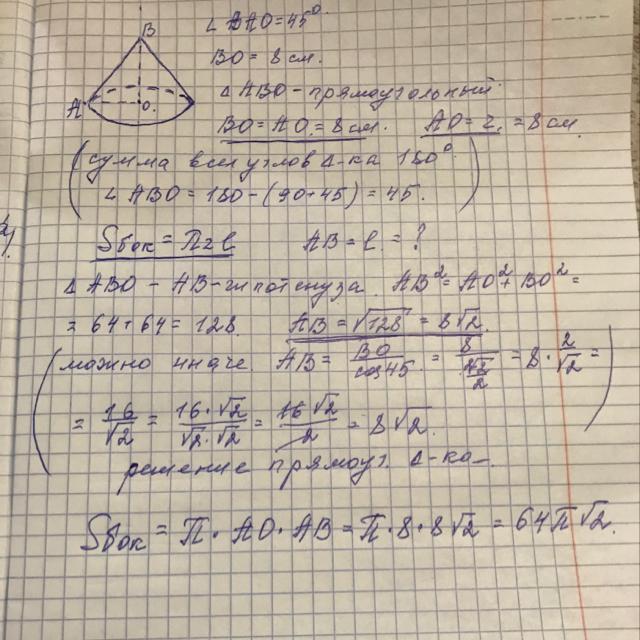 B
A
O
∠ BAO = 45°
BO = 8 см.
Δ ABO - прямоугольный.
BO = AO = 8 см. AO = r = 8 см
(сумма всех углов Δ-ка 180°.
∠ ABO = 180 - (90 + 45) = 45.)
Sбок = Пrl AB = l = ?
Δ ABO - AB - гипотенуза. AB² = AO² + BO² =
= 64 + 64 = 128. AB = √128 = 8√2.
(можно иначе. AB = BO/cos45 = 8/(√2/2) = 8 · 2/√2 =
= 16/√2 = 16·√2/√2·√2 = 16√2/2 = 8√2.
решение прямоуг. Δ-ка.)
Sбок = П · AO · AB = П · 8 · 8√2 = 64П√2.